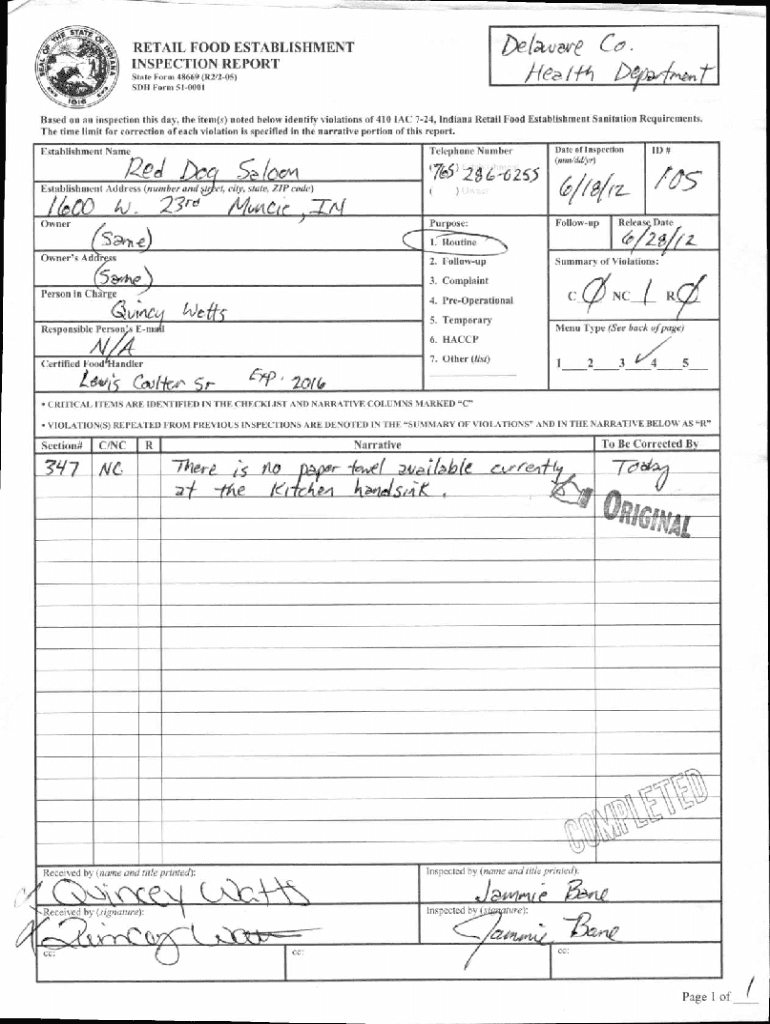 SEAL OF THE STATE OF INDIANA
1816
RETAIL FOOD ESTABLISHMENT
INSPECTION REPORT
State Form 48669 (R2/2-05)
SDH Form 51-0001
Delaware Co.
Health Department
Based on an inspection this day, the item(s) noted below identify violations of 410 IAC 7-24, Indiana Retail Food Establishment Sanitation Requirements.
The time limit for correction of each violation is specified in the narrative portion of this report.
Establishment Name
Red Dog Saloon
Telephone Number
(765) 286-0255
( ) Owner
Date of Inspection
(mm/dd/yr)
6/18/12
ID #
105
Establishment Address (number and street, city, state, ZIP code)
1600 W. 23rd Muncie, IN
Owner
(Same)
Purpose:
1. Routine
2. Follow-up
3. Complaint
4. Pre-Operational
5. Temporary
6. HACCP
7. Other (list)
Follow-up
Release Date
6/28/12
Owner's Address
(Same)
Summary of Violations:
C 0 NC 1 R 0
Person in Charge
Quincy Watts
Responsible Person's E-mail
N/A
Menu Type (See back of page)
1 2 3 ✓ 4 5
Certified Food Handler
Lewis Coulter Sr Exp. 2016
• CRITICAL ITEMS ARE IDENTIFIED IN THE CHECKLIST AND NARRATIVE COLUMNS MARKED "C"
• VIOLATION(S) REPEATED FROM PREVIOUS INSPECTIONS ARE DENOTED IN THE "SUMMARY OF VIOLATIONS" AND IN THE NARRATIVE BELOW AS "R"
Section# C/NC R Narrative To Be Corrected By
347 NC There is no paper towel available currently Today
at the Kitchen handsink.
ORIGINAL
COMPLETED
Received by (name and title printed):
Quincey Watts
Inspected by (name and title printed):
Jammie Bane
Received by (signature):
Quincey Watts
Inspected by (signature):
Jammie Bane
cc: cc: cc:
Page 1 of 1